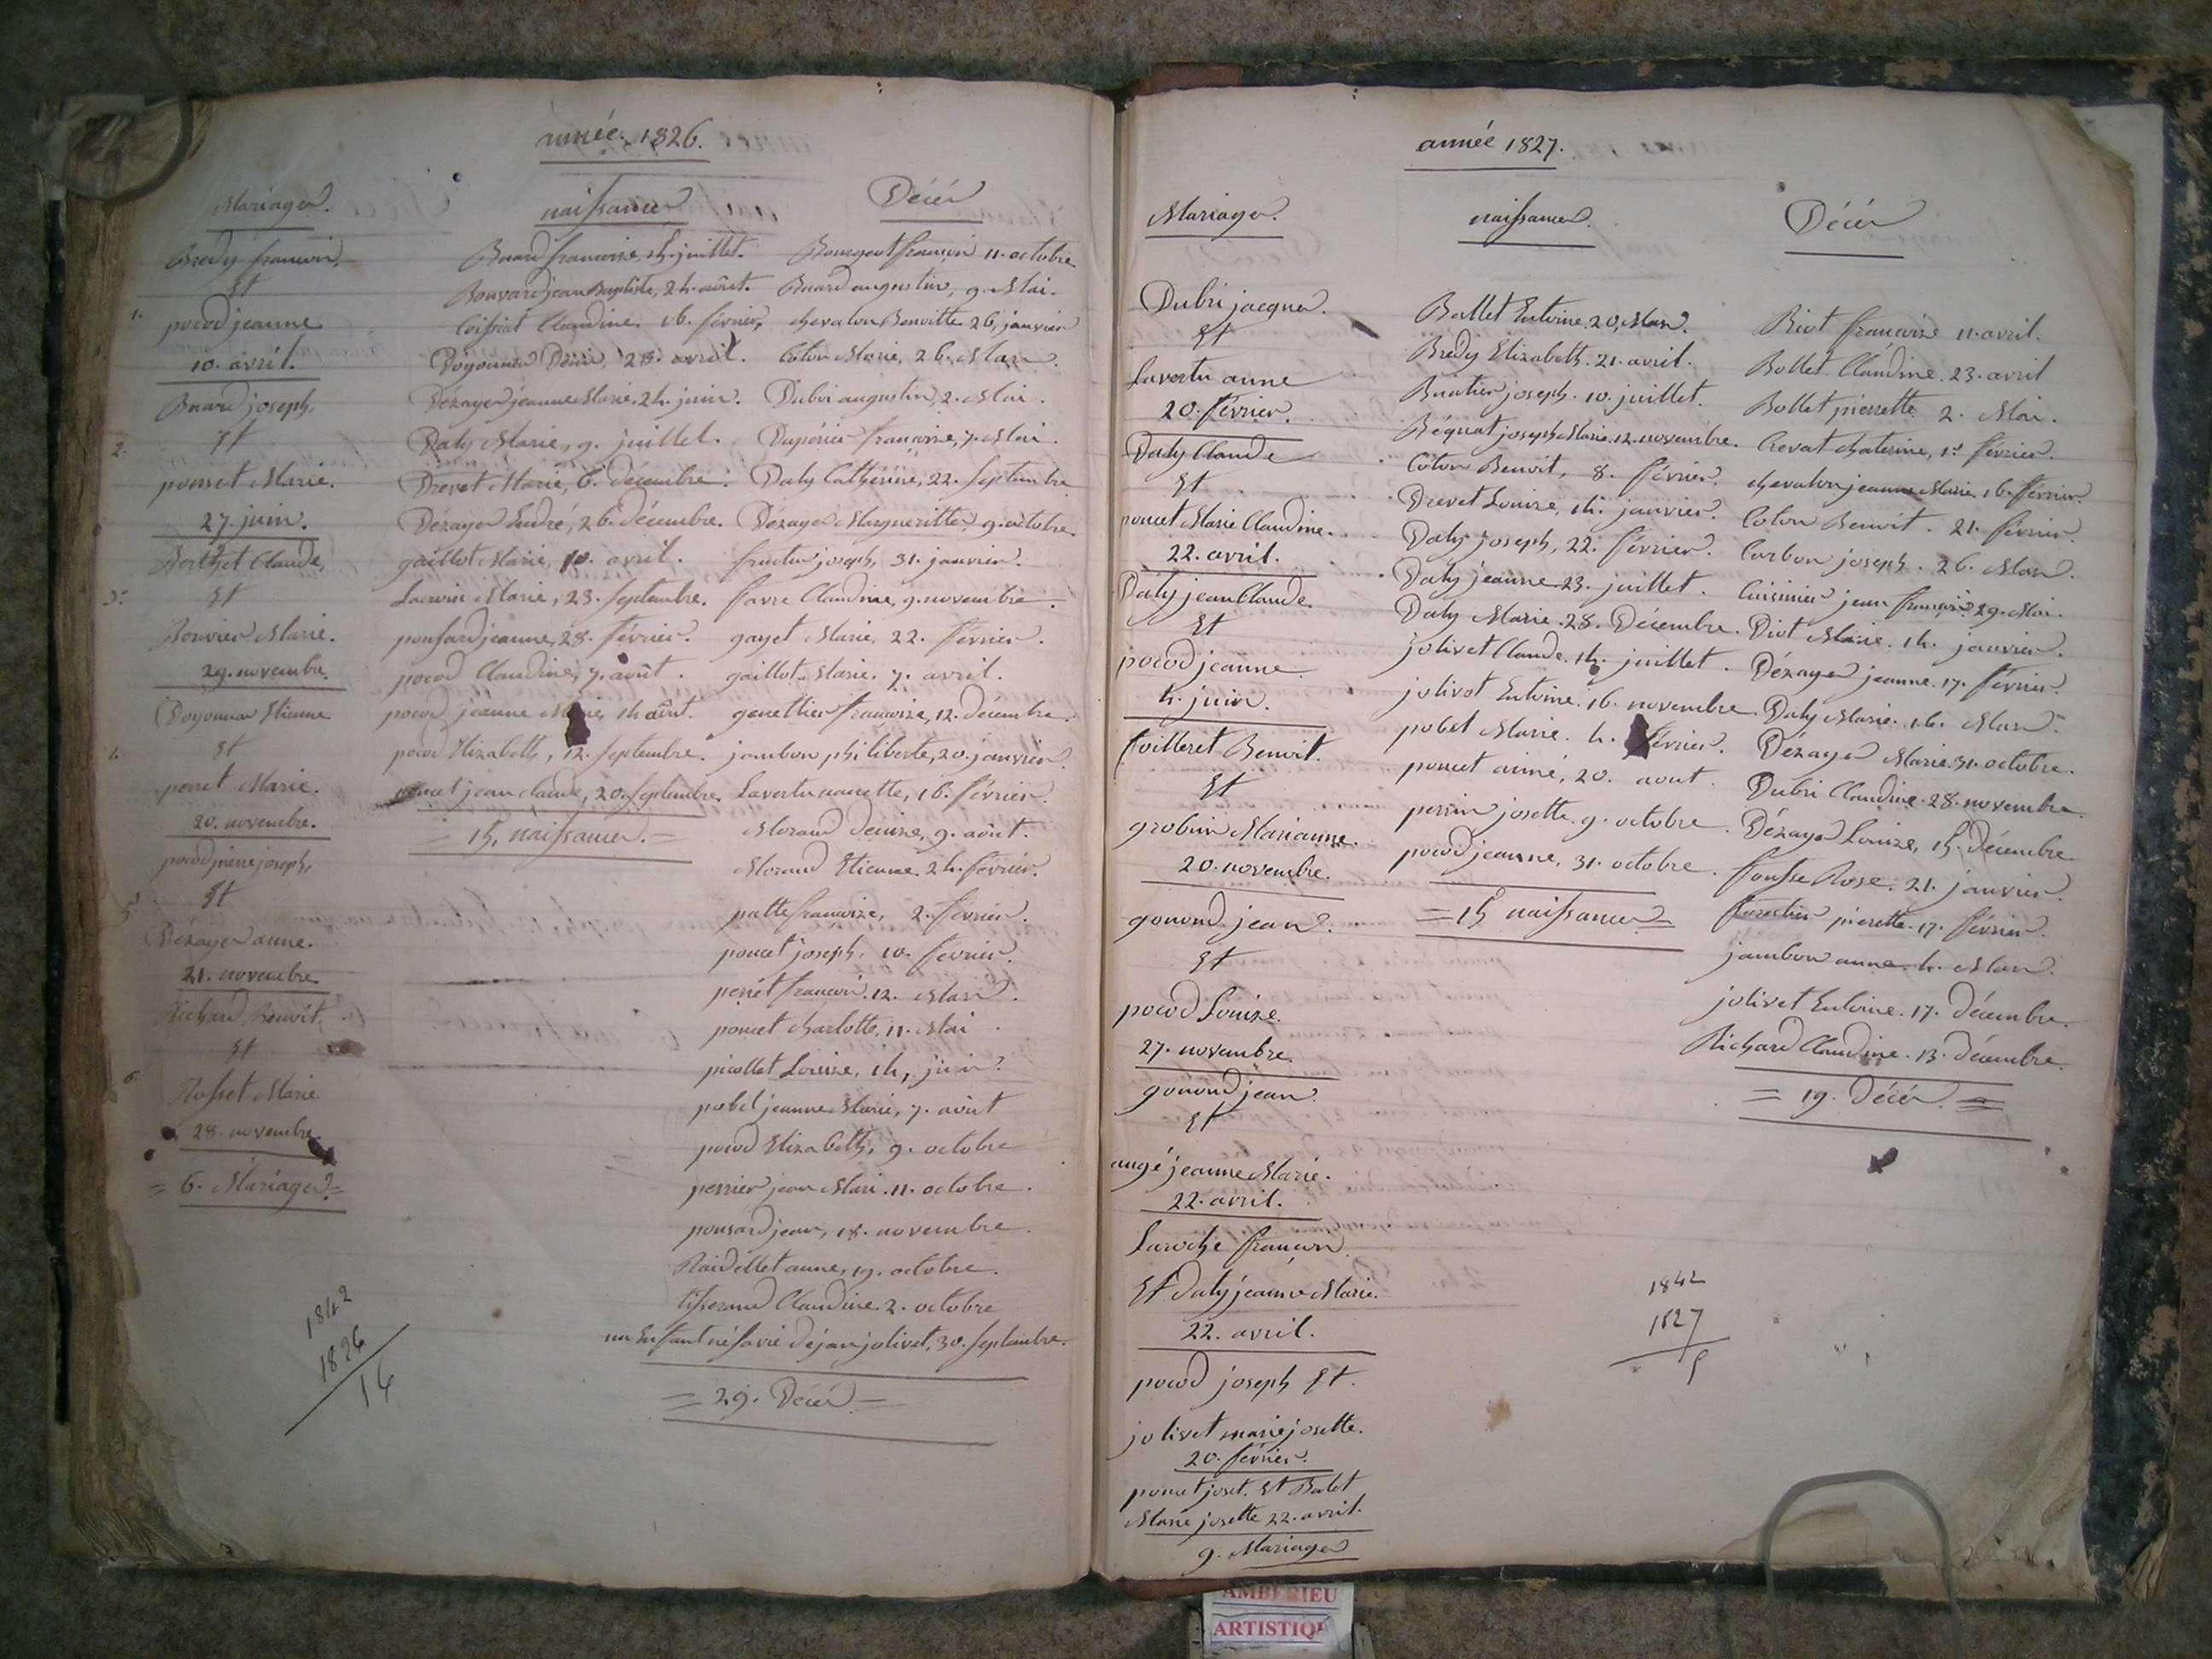 année. 1826.
Mariages.
Bredy francois,
Et
1. pocod jeanne
10. avril.
Buard joseph,
Et
2. ponset Marie.
27. juin.
Berthet Claude,
3. Et
Bouvier Marie.
29. novembre.
Doyonnas Etienne
4. Et
perret Marie.
20. novembre.
pocod pierre joseph,
5. Et
Dézayes anne.
21. novembre.
Richard Benoit.
Et
6. Rosset Marie.
28. novembre.
= 6. Mariages =
naissances
Buard francoise, 15. juillet.
Bouvard jean Baptiste, 24. août.
Coissiat Claudine, 16. février,
Doyonnas Denis, 28. avril.
Dézayes jeanne Marie, 24. juin.
Daty Marie, 9. juillet.
Drevet Marie, 6. décembre.
Dézayes André, 26. décembre.
gaillot Marie, 10. avril.
Marie, 23. septembre.
ponsard jeanne, 28. février.
pocod Claudine, 7. août.
pocod jeanne Marie, 14 août.
pocod Elizabeth, 12. septembre.
poncet jean claude, 20. septembre.
= 15. naissances. =
Décès
francois 11. octobre
Buard augustin, 9. Mai.
chevalon Benoitte 26, janvier
Coton Marie, 26. Mars.
Dubri augustin, 2. Mai.
francoise, 7. Mai.
Daty Catherine, 22. septembre
Dezayes Margueritte 9. octobre.
joseph, 31. janvier.
favre Claudine, 9. novembre.
gayet Marie, 22. février.
gaillot Marie, 7. avril.
genettier francoise, 12. décembre.
jambon philiberte, 20. janvier.
Lavertu nanette, 16. février.
Morand Denise, 9. août.
Morand Etienne. 24. février.
patte francoise, 2. février.
poncet joseph, 10. février.
perret francois. 12. Mars.
poncet charlotte, 11. Mai.
picollet Louise, 14, juin.
pobel jeanne Marie, 7. août
pocod Elizabeth, 9. octobre
perrier jean Mari. 11. octobre.
ponsard jean, 18. novembre.
anne, 19. octobre.
tisserand Claudine. 2. octobre
un Enfant né jolivet, 30. septembre.
= 29. Décès =
1842
1826
16
année 1827.
Mariages.
Dubri jacques.
Et
Lavertu anne
20. février.
Daty Claude
Et
poncet Marie Claudine.
22. avril.
Daty jean Claude.
Et
pocod jeanne
4. juin.
foilleret Benoit.
Et
grobuis Marianne.
20. novembre.
gonond jean.
Et
pocod Louise.
27. novembre.
gonond jean
Et
augé jeanne Marie.
22. avril.
Laroche francois
Et Daty jeanne Marie.
22. avril.
pocod joseph Et.
jolivet marie josette.
20. février.
poncet joset. Et Balet
Marie josette 22. avril.
9. Mariages
naissances.
Ballet Antoine. 20, Mars.
Bredy Elizabeth. 21. avril.
Buatier joseph. 10. juillet.
Béguat joseph Marie. 12. novembre.
Coton Benoit, 8. février.
Drevet Louise, 14. janvier.
Daty joseph, 22. février.
Daty jeanne 23. juillet.
Daty Marie. 28. Décembre.
jolivet Claude. 14. juillet.
jolivet Antoine. 16. novembre.
pobel Marie. 4. février.
poncet aimé, 20. aout.
perrin josette. 9. octobre.
pocod jeanne, 31. octobre.
= 15 naissances =
Décès
Biot francoise 11. avril.
Bollet Claudine. 23. avril
Bollet pierrette 2. Mai.
Crevat chaterine, 1er février.
chevalon jeanne Marie. 16. février.
Coton Benoit. 21. février.
Curbon joseph. 26. Mars.
Cuisinier jean francois. 29. Mai.
Diot Marie. 14. janvier.
Dézayes jeanne. 17. février.
Daty Marie. 16. Mars.
Dézayes Marie. 31. octobre.
Dubri Claudine. 28. novembre.
Dézayes Louise, 15. Décembre.
fousse Rose. 21. janvier.
forestier pierette. 17. février.
jambon anne. 4. Mars.
jolivet Antoine. 17. Décembre.
Richard Claudine. 13. décembre.
= 19. Décès. =
1842
1827
5
AMBERIEU
ARTISTIQ